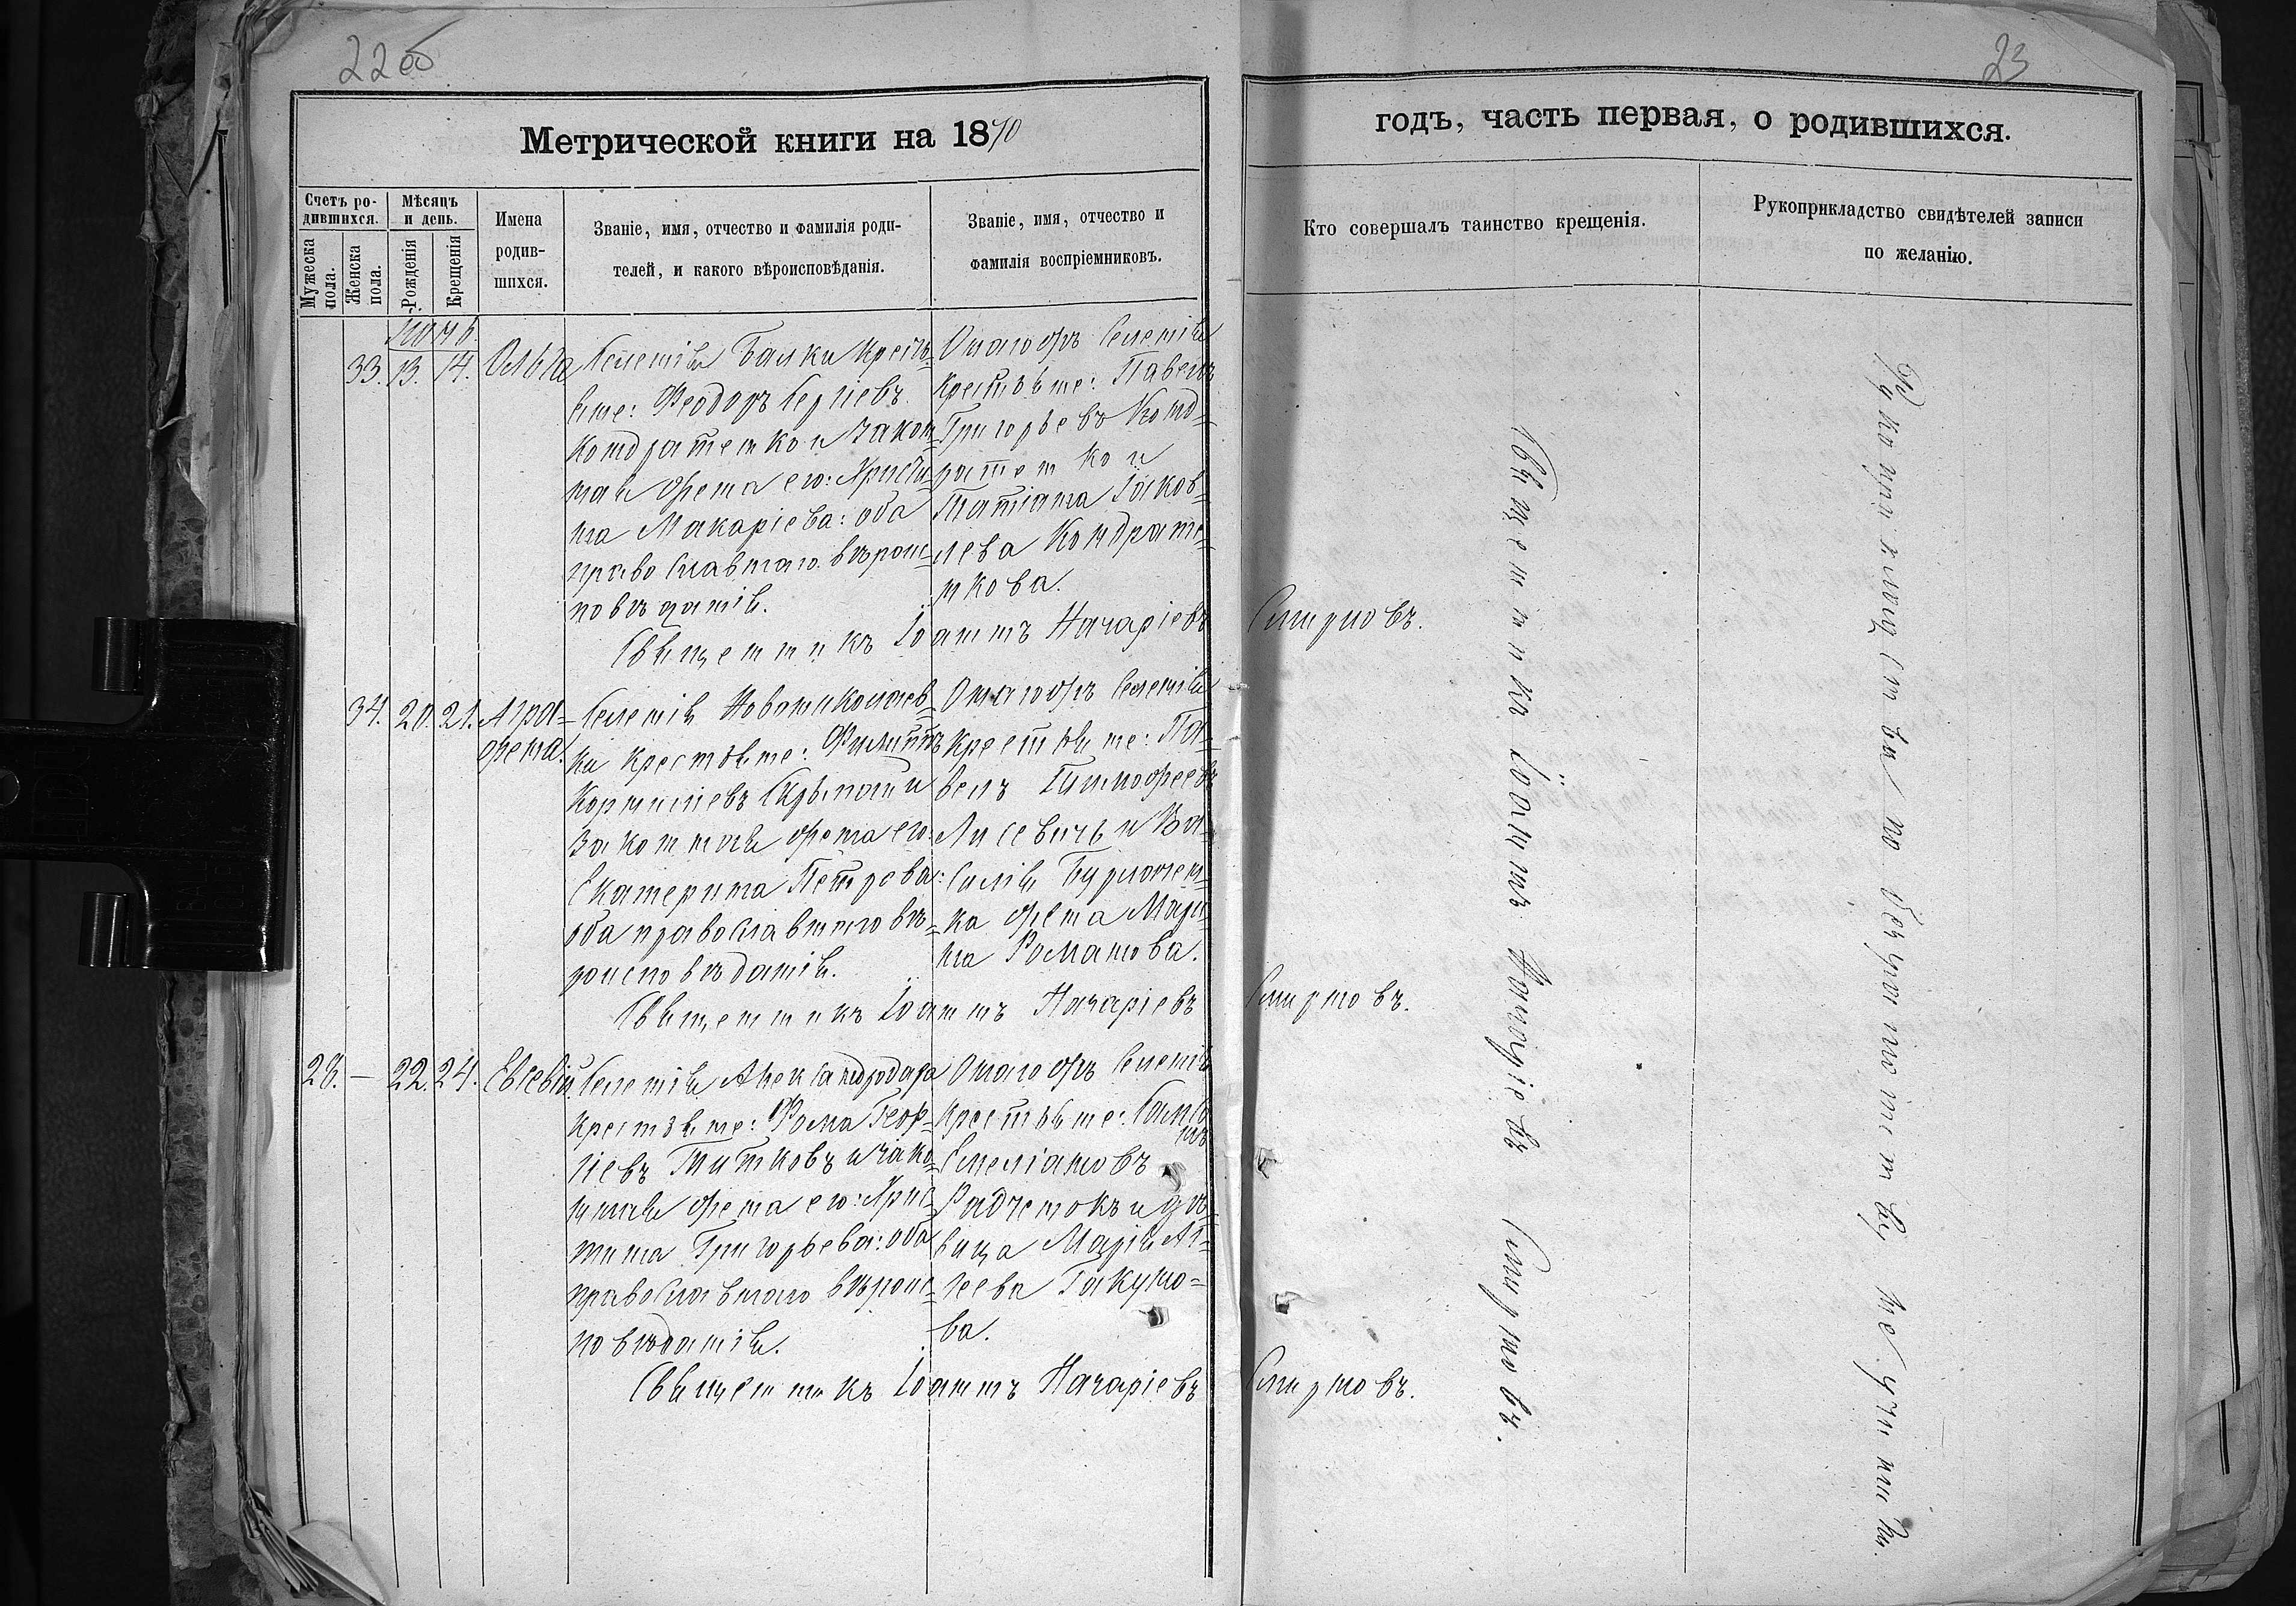 22 об
23
Метрической книги на 1870
годъ, часть первая, о родившихся.
Счетъ ро-
дившихся.
Мѣсяцъ
и день.
Мужеска
пола.
Женска
пола.
Рожденія
Крещенія
Имена
родив-
шихся.
Званіе, имя, отчество и фамилія роди-
телей, и какого вѣроисповѣданія.
Званіе, имя, отчество и
фамилія воспріемниковъ.
Кто совершалъ таинство крещенія.
Рукоприкладство свидѣтелей записи
по желанію.
33. 13. 14. Ольга
Селенія Балки крестья-
нине: Феодоръ Сергіевъ
Кондратенко и закон-
ная жена его: Христи-
на Макаріева: оба
православнаго вѣроис-
повѣданія.
Онагожъ Селенія
крестьяне: Павелъ
Григорьевъ Конд-
ратенко и
Татіана Іаков-
лева Кондрате-
нкова.
Священникъ Іоаннъ Назаріевъ
Смирновъ.
34. 20. 21. Агра-
фена.
Селенія Новониколаев-
ки крестьяне: Филиппъ
Корниліевъ и
Законная жена его:
Екатерина Петрова:
оба православнаго вѣ-
роисповѣданія.
Онагожъ Селенія
крестьяне: Па-
велъ Тимофеевъ
Лисевичь и Ва-
силія Бурлочен-
ка жена Мари-
на Романова.
Священникъ Іоаннъ Назаріевъ
Смирновъ.
28. — 22. 24. Евсевій.
Селенія Александродара
крестьяне: Фома Геор-
гіевъ Титковъ и зако-
нная жена его: Хрис-
тина Григорьева: оба
православнаго вѣроис-
повѣданія.
Онагожъ Селенія
крестьяне:
Емеліановъ
Радченокъ и дѣ-
вица Марія Ал-
ѣева Гакумо-
ва.
Священникъ Іоаннъ Назаріевъ
Смирновъ.
Священникъ Іоаннъ Назаріевъ Смирновъ.
Рукоприкладства по безграмотству не учинили.